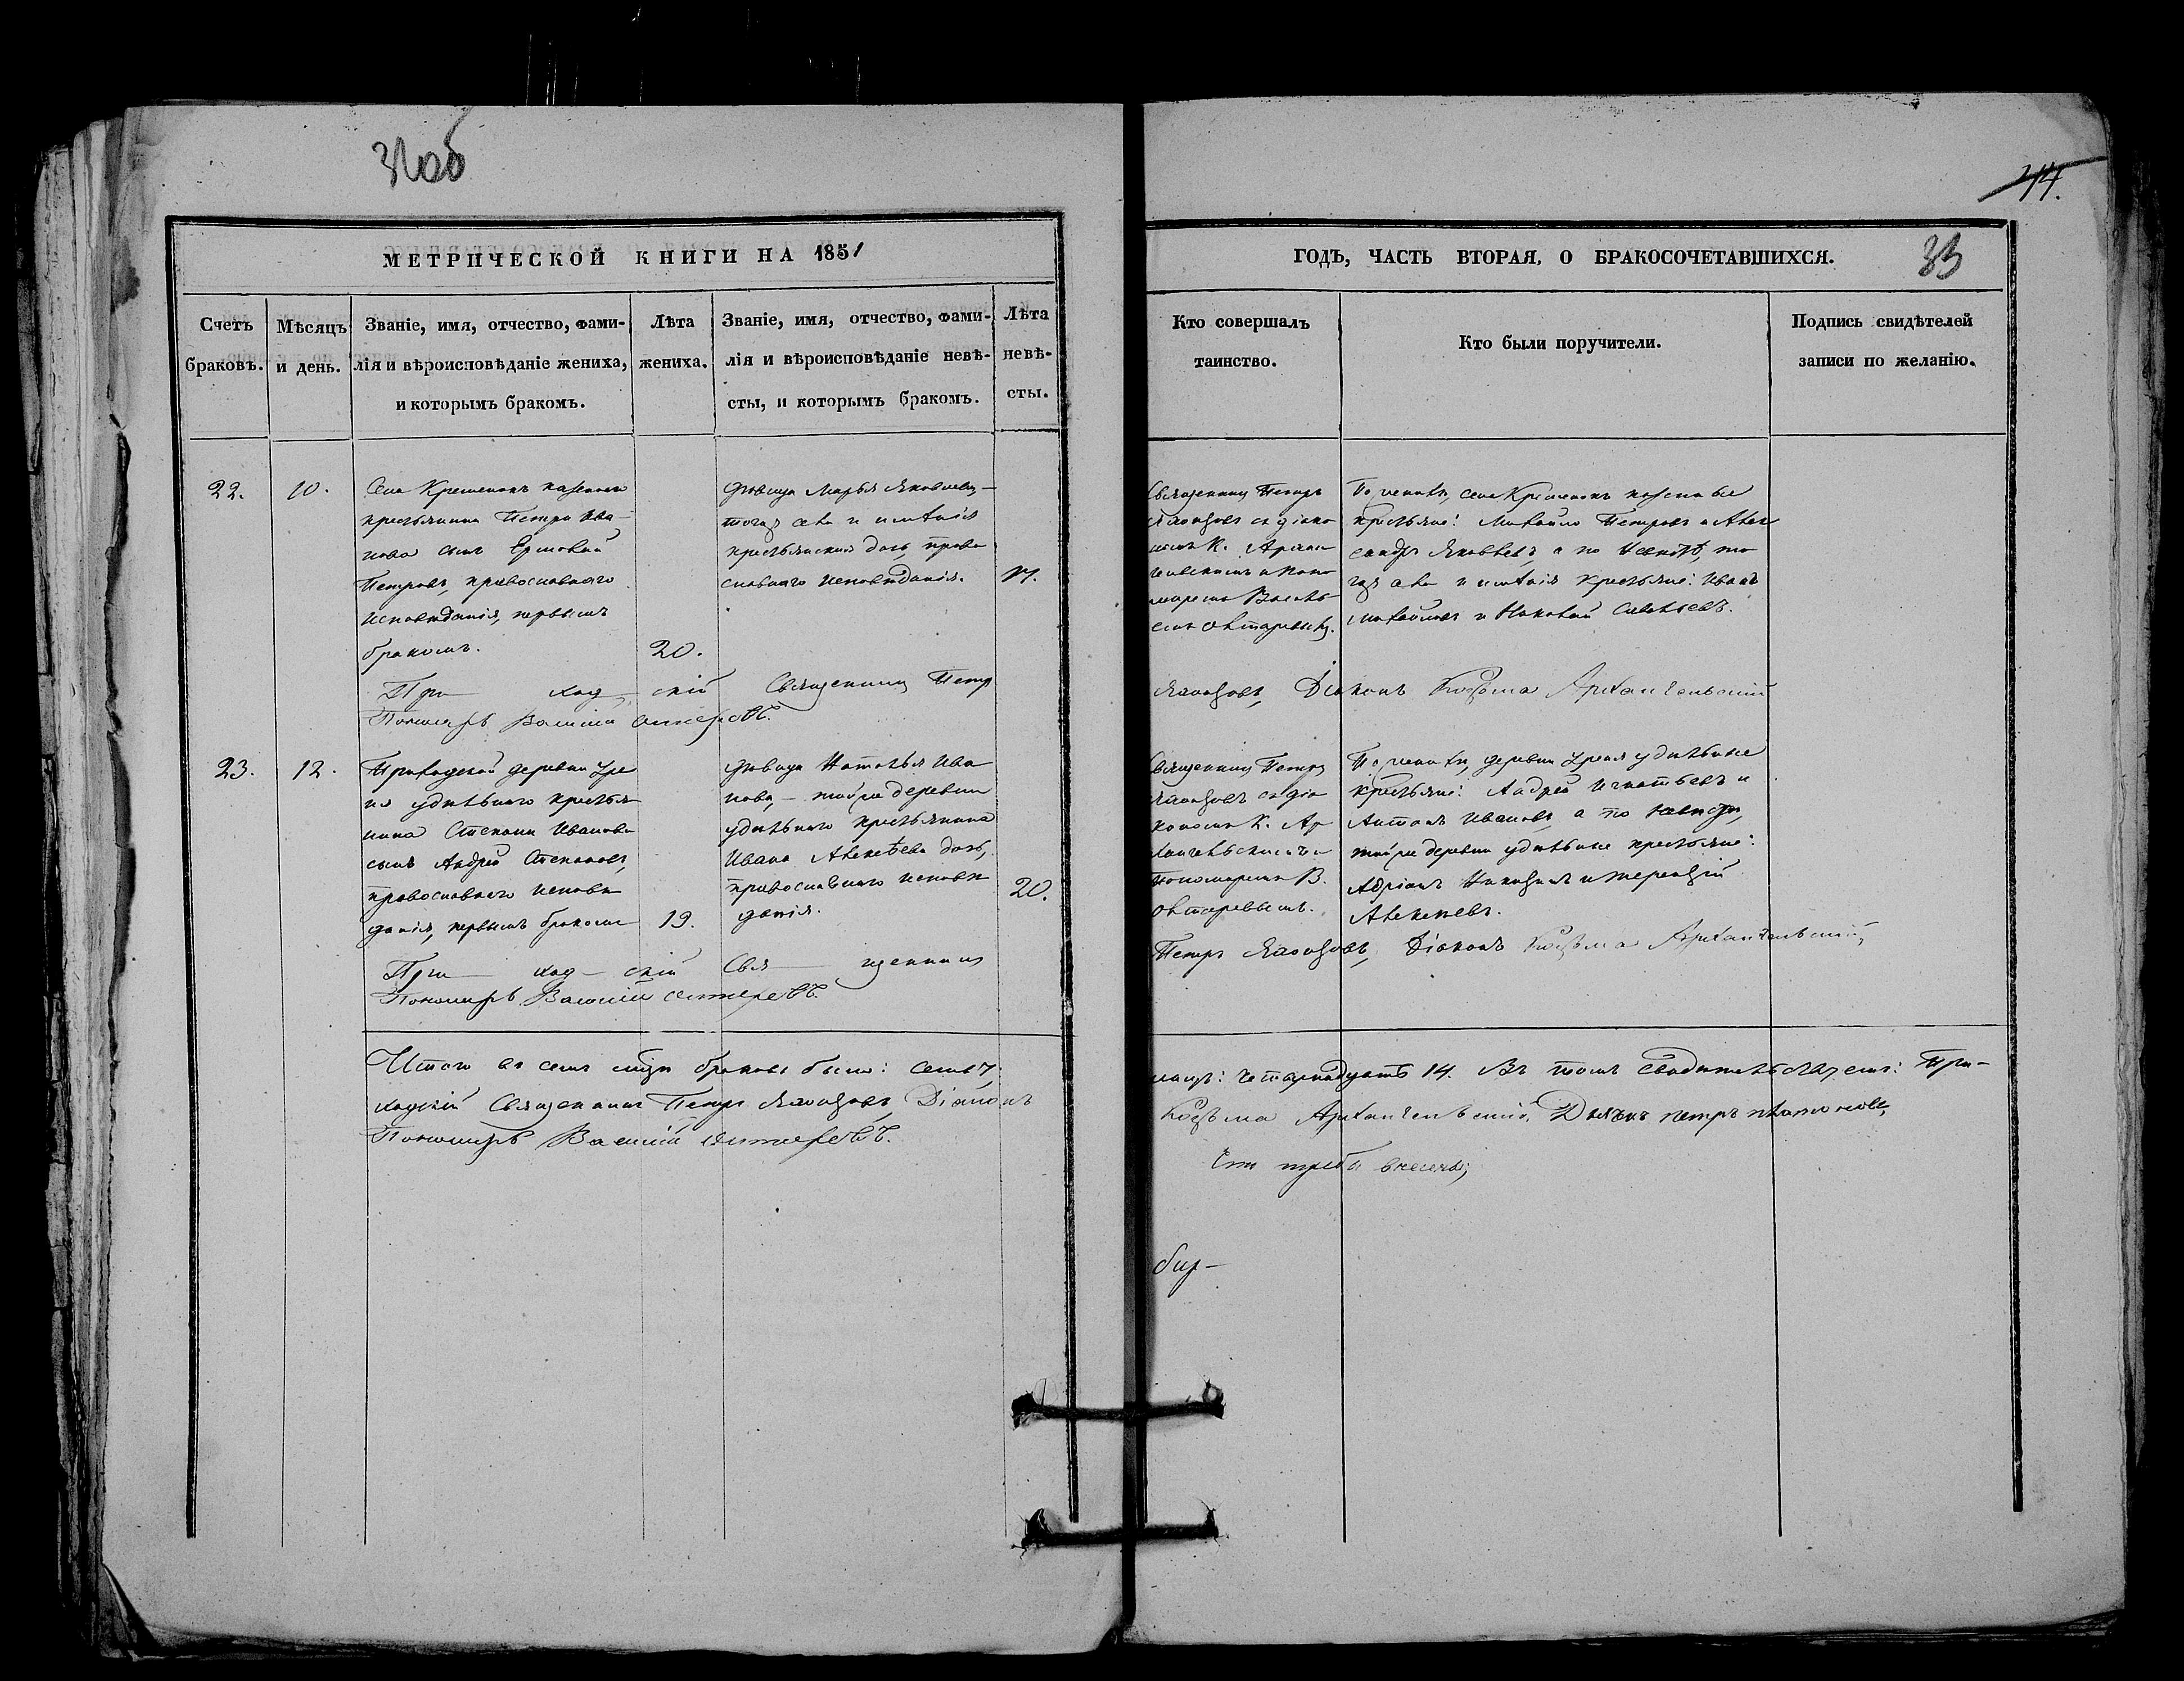 44.
МЕТРИЧЕСКОЙ КНИГИ НА 1851
ГОДЪ, ЧАСТЬ ВТОРАЯ, О БРАКОСОЧЕТАВШИХСЯ.
33
Счетъ
браковъ.
Мѣсяцъ
и день.
Званіе, имя, отчество, фами-
лія и вѣроисповѣданіе жениха,
и которымъ бракомъ.
Лѣта
жениха.
Званіе, имя, отчество, фами-
лія и вѣроисповѣданіе невѣ-
сты, и которымъ бракомъ.
Лѣта
невѣ-
сты.
Кто совершалъ
таинство.
Кто были поручители.
Подпись свидѣтелей
записи по желанію.
22.
10.
Села Кременокъ казеннаго
крестьянина Петра Ива-
нова сынъ Ермолай
Петровъ, православнаго
исповѣданія, первымъ
бракомъ.
20.
дѣвица Марья Яковлева,
тогоже села и имѣнія
крестьянская дочь, право
славнаго исповѣданія.
Священникъ Петръ
съ діако
номъ К. Архан
гельскимъ и поно
маремъ Василь
емъ
По женихѣ, села Кременокъ казенные
крестьяне: Михайло Петровъ и Алек
сандръ Яковлевъ, а по невѣстѣ, то
гоже села и имѣнія крестьяне: Иванъ
Михайловъ и Николай Савельевъ.
При ход скій Священникъ Петръ
Діаконъ Козьма Архангельскій
Пономарь Василій
23.
12.
Приходской деревни
удѣльнаго крестья
нина Степана Иванова
сынъ Андрей Степановъ,
православнаго исповѣ
данія, первымъ бракомъ
19.
дѣвица Наталья Ива
нова, той же деревни
удѣльнаго крестьянина
Ивана Алексѣева дочь,
православнаго исповѣ
данія.
20.
Священникъ Петръ
съ діа
кономъ К. Ар
хангельскимъ и
пономаремъ В.
По женихѣ, деревни удѣльные
крестьяне: Андрей Игнатьевъ и
Антонъ Ивановъ, а по невѣстѣ,
той же деревни удѣльные крестьяне:
Адріанъ и Терентій
Алексѣевъ.
При ход скій Свя щенникъ
Петръ Діаконъ Козьма Архангельскій,
Пономарь Василій
Итого въ семъ браковъ было: семь 7,
14. Въ томъ свидѣтельствуемъ: При-
ходскій Священникъ Петръ Діаконъ
Козьма Архангельскій, Дьячекъ Петръ
Пономарь Василій